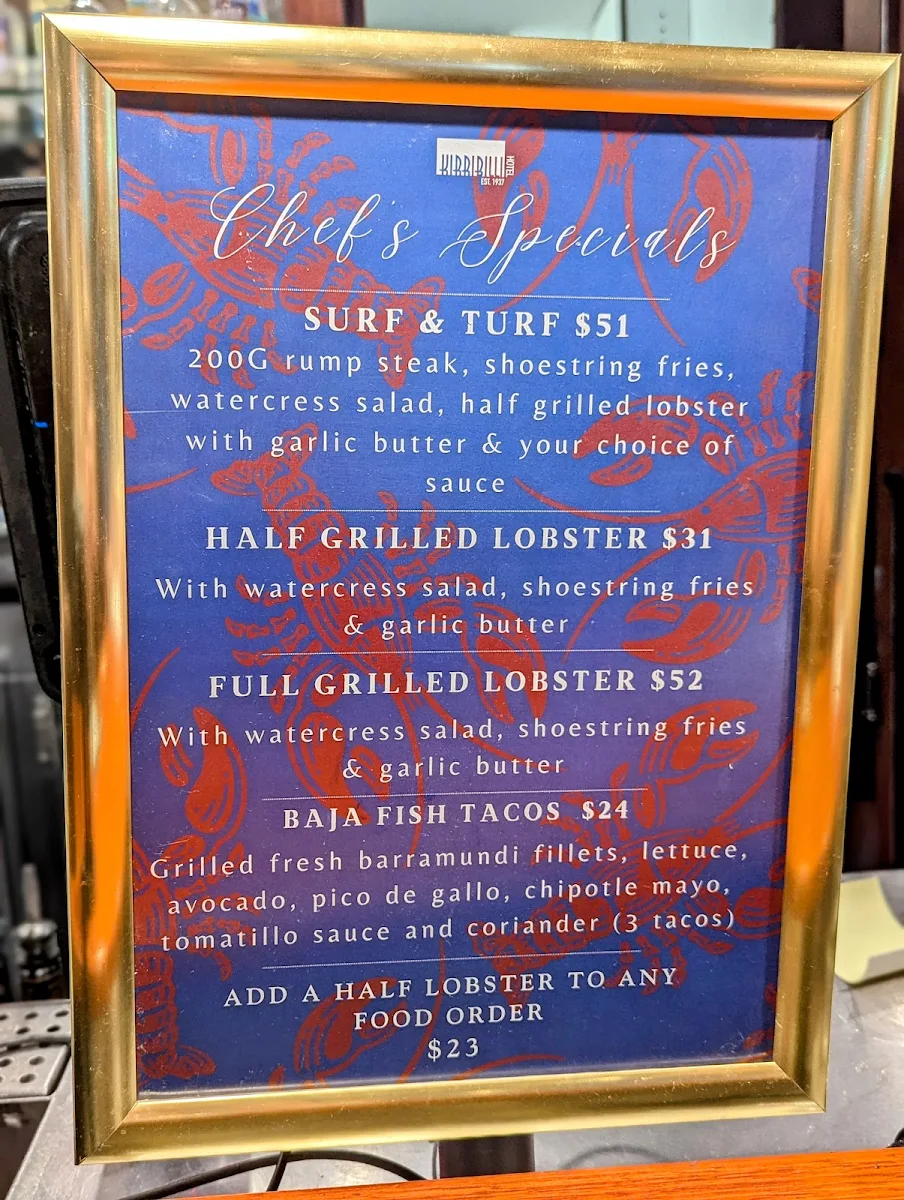 KIRRIBILLI
HOTEL
EST. 1937
Chef's Specials
SURF & TURF $51
200G rump steak, shoestring fries,
watercress salad, half grilled lobster
with garlic butter & your choice of
sauce
HALF GRILLED LOBSTER $31
With watercress salad, shoestring fries
& garlic butter
FULL GRILLED LOBSTER $52
With watercress salad, shoestring fries
& garlic butter
BAJA FISH TACOS $24
Grilled fresh barramundi fillets, lettuce,
avocado, pico de gallo, chipotle mayo,
tomatillo sauce and coriander (3 tacos)
ADD A HALF LOBSTER TO ANY
FOOD ORDER
$23